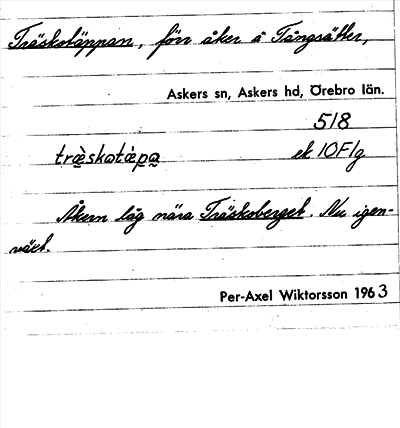 Träskotäppan, förr åker å Tångsätter,
Askers sn, Askers hd, Örebro län.
518
træ̀skotápa ek 10F1g
Åkern låg nära Träskoberget. Nu igen-
växt.
Per-Axel Wiktorsson 1963